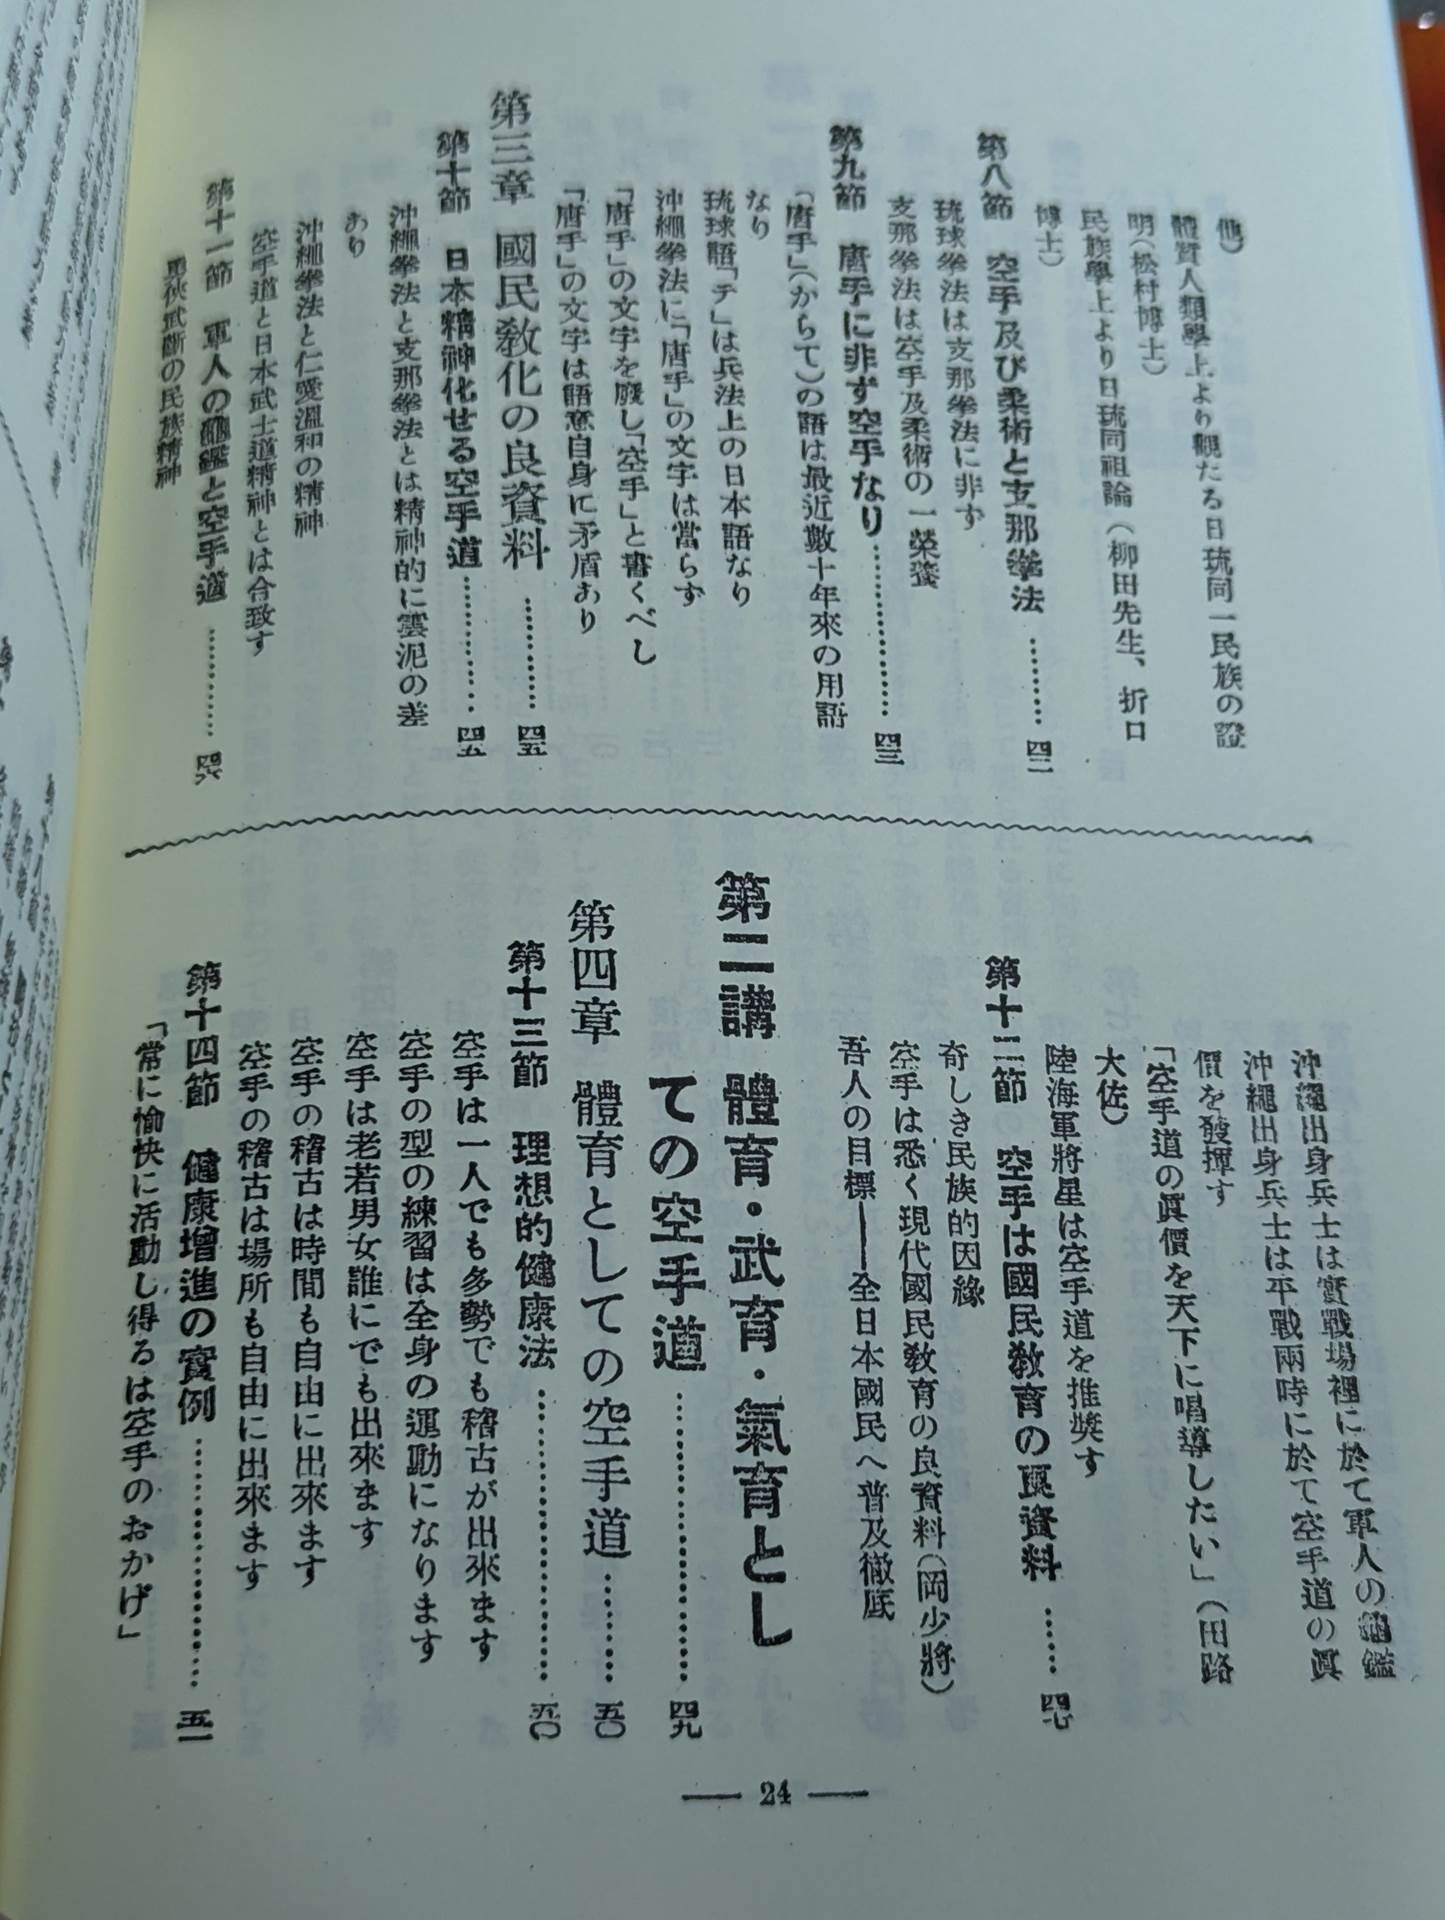 他)
體質人類學上より觀たる日琉同一民族の證
明(松村博士)
民族學上より日琉同祖論(柳田先生、折口
博士)
第八節 空手及び柔術と支那拳法…………四二
琉球拳法は支那拳法に非ず
支那拳法は空手及柔術の一榮養
第九節 唐手に非ず空手なり…………四三
「唐手」(からて)の語は最近數十年來の用語
なり
琉球語「テ」は兵法上の日本語なり
沖繩拳法に「唐手」の文字は當らず
「唐手」の文字を廢し「空手」と書くべし
「唐手」の文字は語意自身に矛盾あり
第三章 國民教化の良資料…………四五
第十節 日本精神化せる空手道…………四五
沖繩拳法と支那拳法とは精神的に雲泥の差
あり
沖繩拳法と仁愛溫和の精神
空手道と日本武士道精神とは合致す
勇俠武斷の民族精神
第十一節 軍人の龜鑑と空手道…………四六
沖繩出身兵士は實戰場裡に於て軍人の龜鑑
沖繩出身兵士は平戰兩時に於て空手道の眞
價を發揮す
「空手道の眞價を天下に唱導したい」(田路
大佐)
陸海軍將星は空手道を推奬す
第十二節 空手は國民教育の良資料……四七
奇しき民族的因緣
空手は悉く現代國民教育の良資料(岡少將)
吾人の目標――全日本國民へ普及徹底
第二講 體育・武育・氣育とし
ての空手道…………四九
第四章 體育としての空手道…………五〇
第十三節 理想的健康法…………五〇
空手は一人でも多勢でも稽古が出來ます
空手の型の練習は全身の運動になります
空手は老若男女誰にでも出來ます
空手の稽古は時間も自由に出來ます
空手の稽古は場所も自由に出來ます
第十四節 健康增進の實例…………五一
「常に愉快に活動し得るは空手のおかげ」
— 24 —